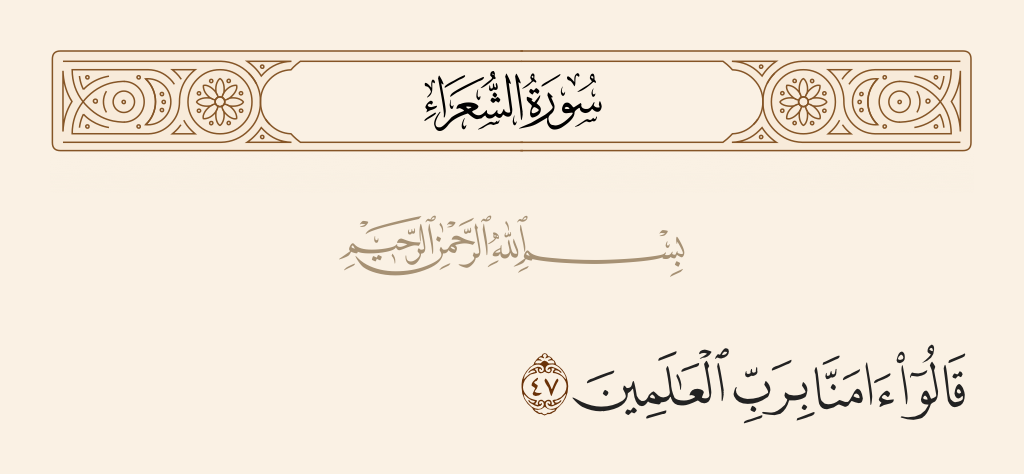 سُورَةُ الشُّعَرَاءِ
بِسْمِ ٱللَّهِ ٱلرَّحْمَٰنِ ٱلرَّحِيمِ
قَالُوٓا۟ ءَامَنَّا بِرَبِّ ٱلْعَـٰلَمِينَ ٤٧